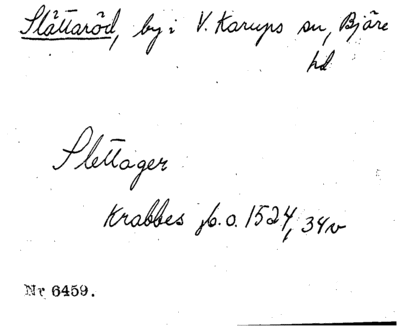 Slättaröd, by i V. Karups sn, Bjäre
hd
Slettager
Krabbes jb. o. 1524, 34v
Nr 6459.